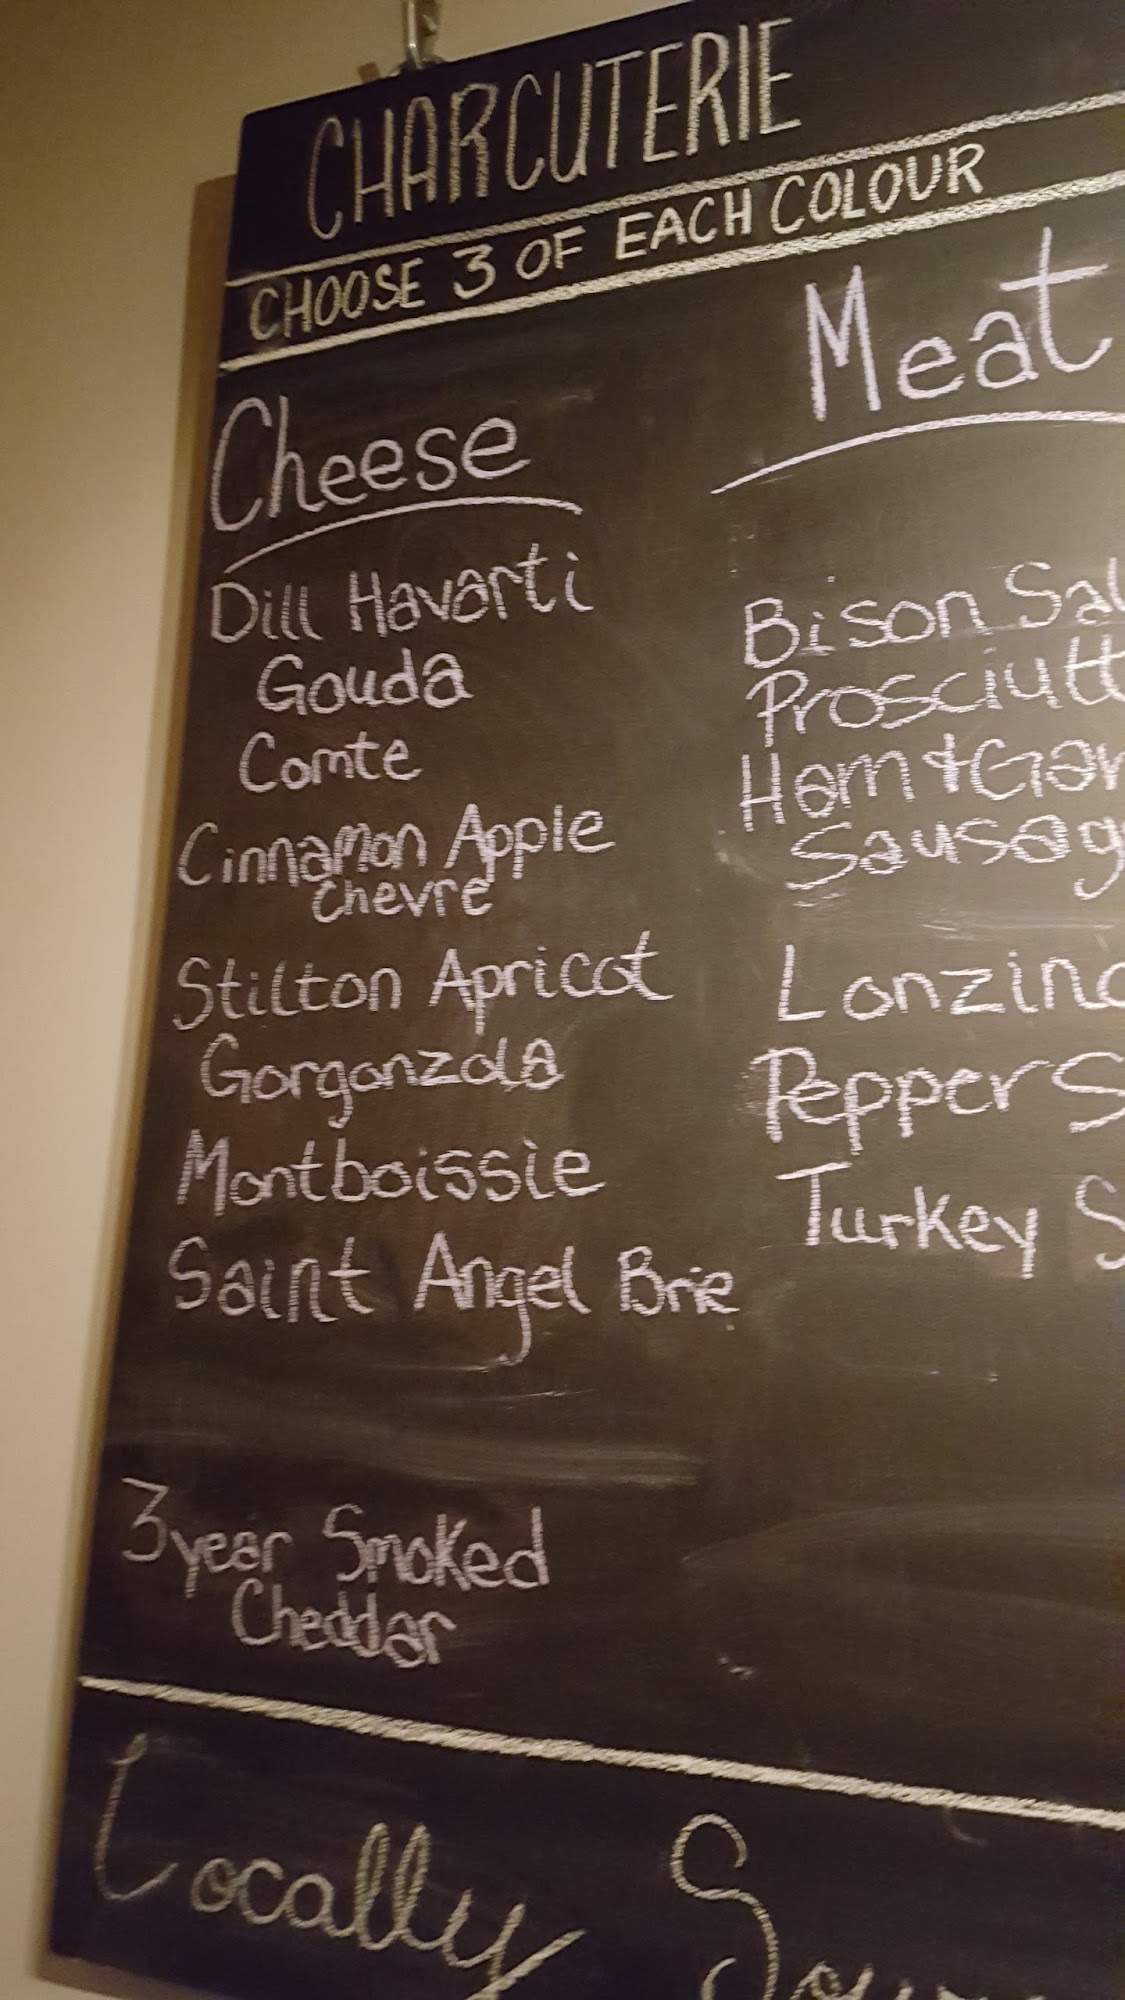 CHARCUTERIE
CHOOSE 3 OF EACH COLOUR
Cheese
Dill Havarti
Gouda
Comte
Cinnamon Apple
chevre
Stilton Apricot
Gorgonzola
Montboissie
Saint Angel Brie
3 year Smoked
Cheddar
Meat
Bison Sal
Prosciutt
Ham & Gar
Sausag
Lonzino
Pepper S
Turkey S
Locally Sour